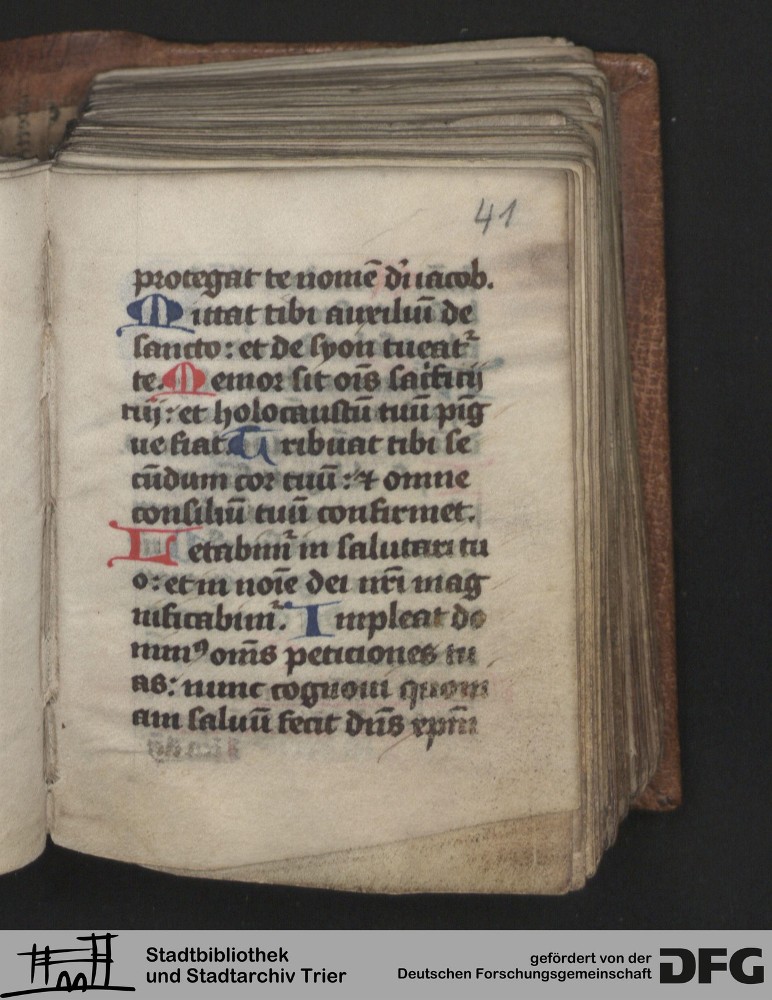 41
protegat te nomē di iacob.
Mittat tibi auxiliū de
sancto: et de syon tueat᷑
te. Memor sit oīs sacͥficij
tuj: et holocaustū tuū pīg
ue fiat. Tribuat tibi se
cūdum cor tuū: ⁊ omne
consiliū tuū confirmet.
Letabim᷑ in salutari tu
o: et in noīe dei nr̄i mag
nificabim᷑. Impleat do
minꝰ om̄s peticiones tu
as: nunc cognoui quoni
am saluū fecit dn̄s xp̄m
Stadtbibliothek
und Stadtarchiv Trier
gefördert von der
Deutschen Forschungsgemeinschaft
DFG